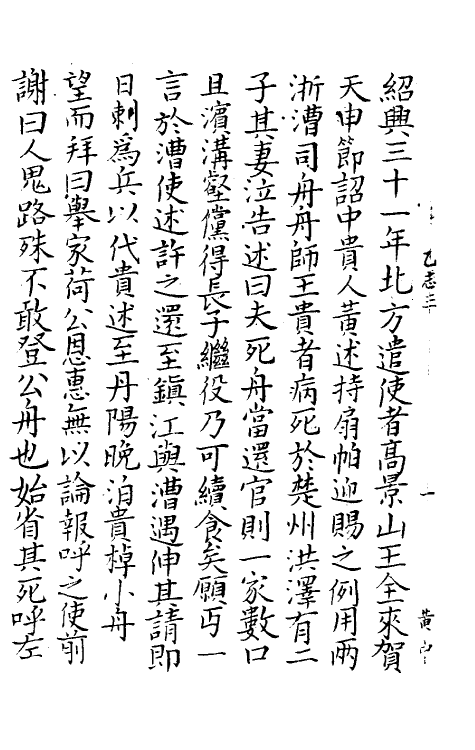 紹興三十一年北方遣使者髙景山王全來賀
天申節詔中貴人黃述持扇帕迎賜之例用兩
浙漕司舟舟師王貴者病死於楚州洪澤有二
子其妻泣告述曰夫死舟當還官則一家數口
且濱溝壑儻得長子繼役乃可續食矣願丐一
言於漕使述許之還至鎮江與漕遇伸其請即
日刺爲兵以代貴述至丹陽晚泊貴棹小舟
望而拜曰舉家荷公恩惠無以論報呼之使前
謝曰人鬼路殊不敢登公舟也始省其死呼左
乙志三
一
黃